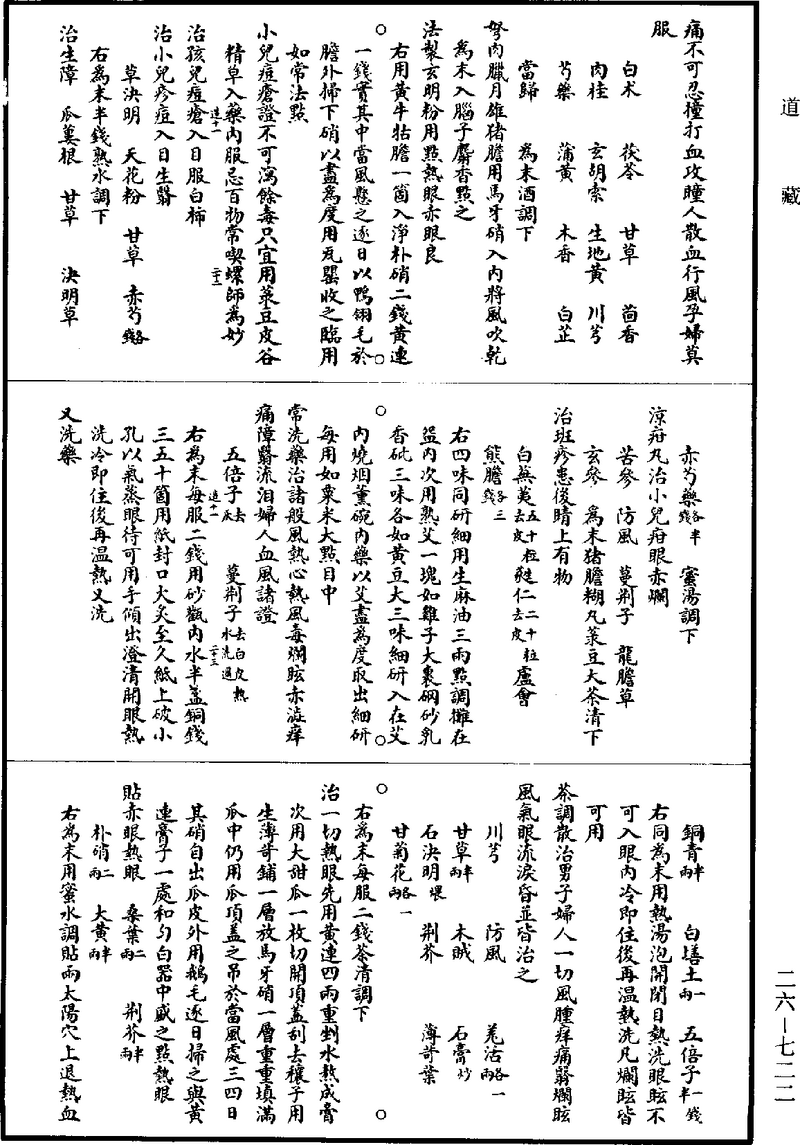 道藏
痛不可忍撞打血攻瞳人散血行風孕婦莫
服
白朮　茯苓　甘草　茴香
肉桂　玄胡索　生地黃　川芎
芍藥　蒲黃　木香　白芷
當歸　為末酒調下
胬肉臘月雄猪膽用馬牙硝入內將風吹乾
為末入腦子麝香點之
法製玄明粉用點熱眼赤眼良
右用黃牛牯膽一箇入淨朴硝二錢黃連
一錢實其中當風懸之逐日以鴨翎毛於
膽外掃下硝以盡為度用瓦罌收之臨用
如常法點
小兒痘瘡證不可瀉餘毒只宜用菉豆皮谷
精草入藥內服忌百物常喫螺師為妙
遠十一　二十二
治孩兒痘瘡入目服白柿
治小兒疹痘入目生翳
草決明　天花粉　甘草　赤芍各錢
右為末半錢熟水調下
治生障　瓜蔞根　甘草　決明草
赤芍藥各半錢　蜜湯調下
涼疳丸治小兒疳眼赤爛
苦參　防風　蔓荆子　龍膽草
玄參　為末猪膽糊丸菉豆大茶清下
治班疹患後睛上有物
白蕪荑五十粒去皮　蕤仁二十粒去皮　盧會
熊膽各三錢
右四味同研細用生麻油三兩點調攤在
盌內次用熟艾一塊如雞子大裹硇砂乳
香砒三味各如黃豆大三味細研入在艾
內燒烟薰碗內藥以艾盡為度取出細研
每用如粟米大點目中
常洗藥治諸般風熱心熱風毒爛眩赤澁癢
痛障翳流泪婦人血風諸證
五倍子去灰　蔓荆子去白皮熱水洗過
遠十一　二十三
右為末每服二錢用砂瓶內水半盞銅錢
三五十箇用紙封口大炙至久紙上破小
孔以氣蒸眼待可用手傾出澄清開眼熱
洗冷即住後再温熱又洗
又洗藥
銅青半兩　白墡土一兩　五倍子一錢半
右同為末用熱湯泡開閉目熱洗眼眩不
可入眼內冷即住後再温熱洗凡爛眩皆
可用
茶調散治男子婦人一切風腫痒痛翳爛眩
風氣眼流淚昏並皆治之
川芎　防風　羌活各一兩
甘草半兩　木賊　石膏炒
石決明煨　荆芥　薄荷葉
甘菊花各一兩
右為末每服二錢茶清調下
治一切熱眼先用黃連四兩重剉水熬成膏
次用大甜瓜一枚切開項蓋刮去穰子用
生薄荷鋪一層放馬牙硝一層重重填滿
瓜中仍用瓜項蓋之吊於當風處三四日
其硝自出瓜皮外用鵝毛逐日掃之與黃
連膏子一處和勻白器中盛之點熱眼
貼赤眼熱眼　桑葉二兩　荆芥半兩
朴硝二兩　大黃半兩
右為末用蜜水調貼兩太陽穴上退熱血
二六－七二二